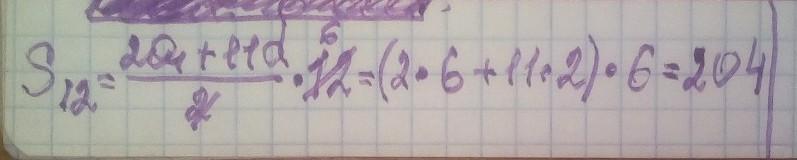 S₁₂ = (2a₁ + 11d)/2 · 12 6 = (2 · 6 + 11 · 2) · 6 = 204